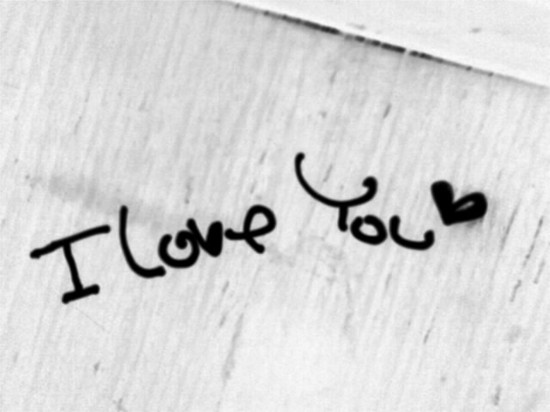 I love You♥